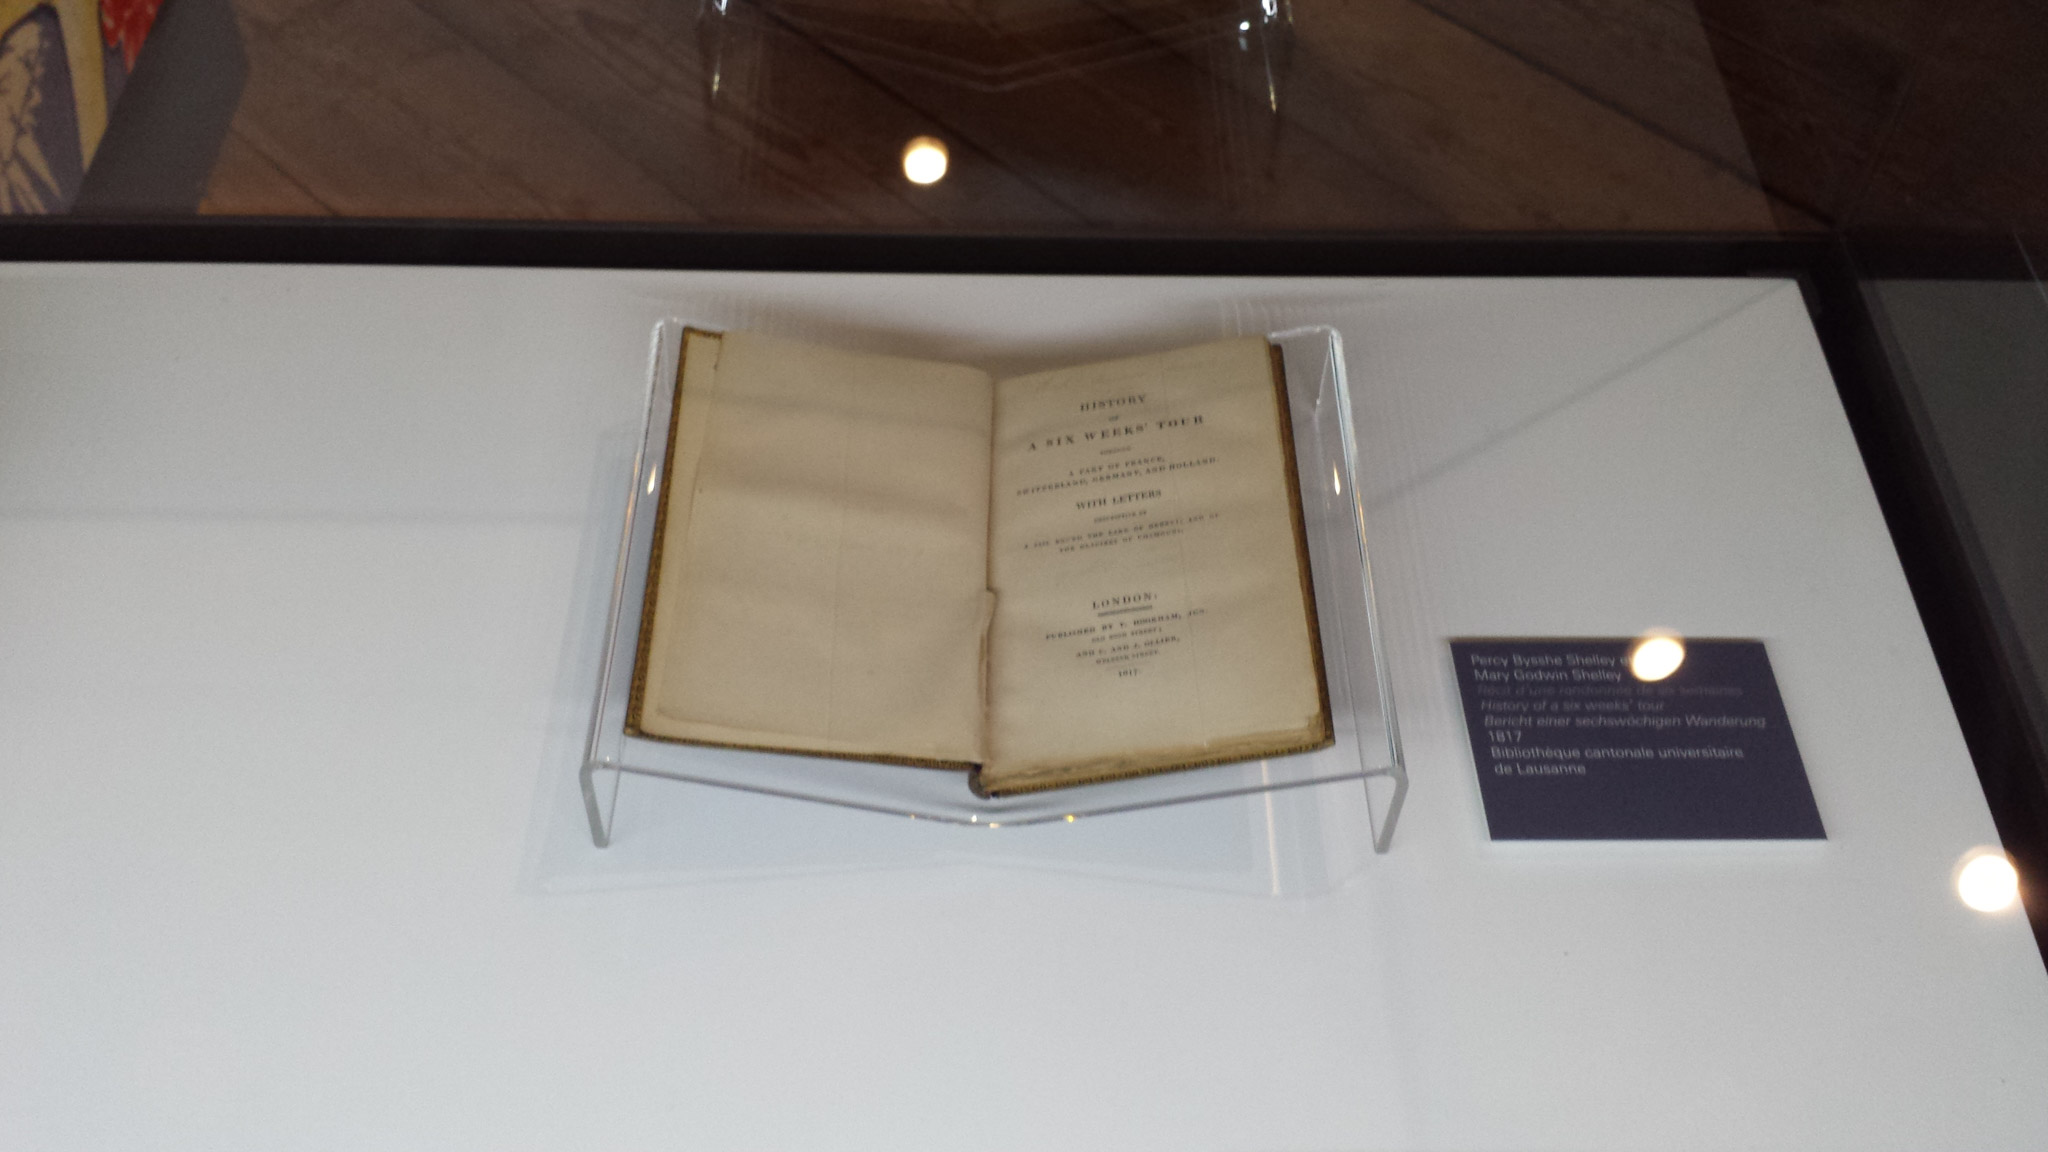 HISTORY
OF
A SIX WEEKS' TOUR
THROUGH
A PART OF FRANCE,
SWITZERLAND, GERMANY, AND HOLLAND:
WITH LETTERS
DESCRIPTIVE OF
A SAIL ROUND THE LAKE OF GENEVA, AND OF
THE GLACIERS OF CHAMOUNI.
LONDON:
PUBLISHED BY T. HOOKHAM, JUN.
OLD BOND STREET;
AND C. AND J. OLLIER,
WELBECK STREET.
1817.
Percy Bysshe Shelley
Mary Godwin Shelley
Récit d'une randonnée de six semaines
History of a six weeks' tour
Bericht einer sechswöchigen Wanderung
1817
Bibliothèque cantonale universitaire
de Lausanne